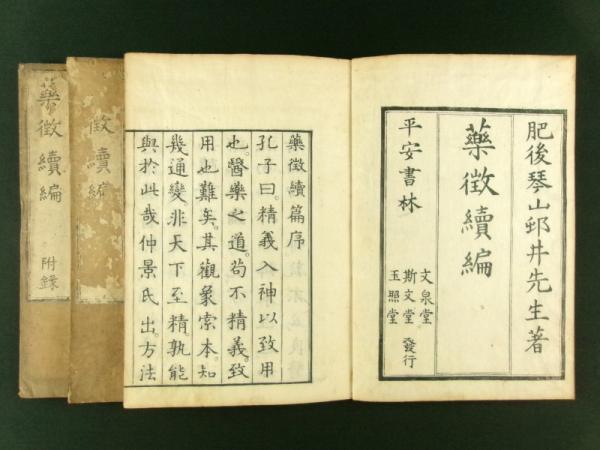 肥後琴山邨井先生著
藥徴續編
平安書林
文泉堂
斯文堂 發行
玉照堂
藥徴續篇序
孔子曰。精義入神以致用
也醫藥之道。苟不精義致
用也難矣。其觀象索本。知
幾通變。非天下至精。孰能
與於此哉仲景氏出。方法
徴續編
藥徴續編
附錄